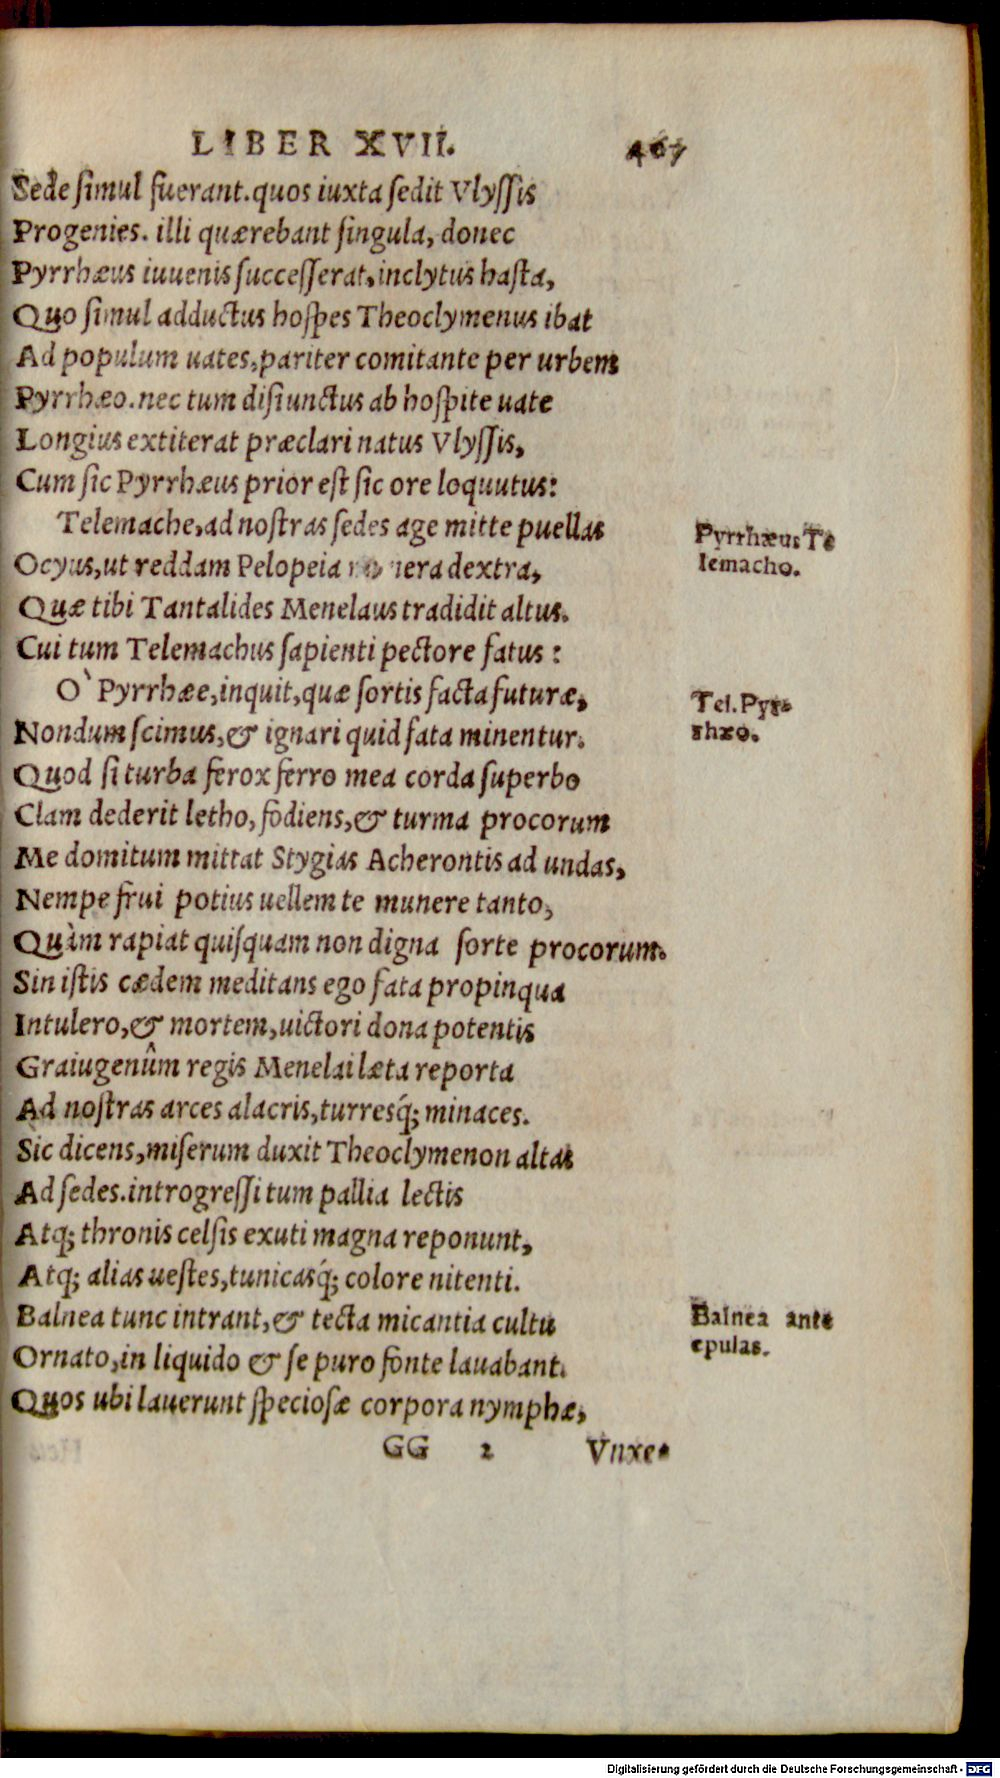 LIBER XVII. 467
Sede simul fuerant. quos iuxta sedit Vlyssis
Progenies. illi quærebant singula, donec
Pyrrhæus iuuenis successerat, inclytus hasta,
Quo simul adductus hospes Theoclymenus ibat
Ad populum uates, pariter comitante per urbem
Pyrrhæo. nec tum disiunctus ab hospite uate
Longius extiterat præclari natus Vlyssis,
Cum sic Pyrrhæus prior est sic ore loquutus:
Telemache, ad nostras sedes age mitte puellas
Pyrrhæus Te
lemacho.
Ocyus, ut reddam Pelopeia dextra,
Quæ tibi Tantalides Menelaus tradidit altus.
Cui tum Telemachus sapienti pectore fatus:
O` Pyrrhæe, inquit, quæ sortis facta futuræ,
Tel. Pyr-
rhæo.
Nondum scimus, & ignari quid fata minentur.
Quod si turba ferox ferro mea corda superbo
Clam dederit letho, fodiens, & turma procorum
Me domitum mittat Stygias Acherontis ad undas,
Nempe frui potius uellem te munere tanto,
Quàm rapiat quisquam non digna sorte procorum.
Sin istis cædem meditans ego fata propinqua
Intulero, & mortem, uictori dona potentis
Graiugenûm regis Menelai læta reporta
Ad nostras arces alacris, turresq́; minaces.
Sic dicens, miserum duxit Theoclymenon altas
Ad sedes. introgressi tum pallia lectis
Atq; thronis celsis exuti magna reponunt,
Atq; alias uestes, tunicasq́; colore nitenti.
Balnea tunc intrant, & tecta micantia cultu
Balnea ante
epulas.
Ornato, in liquido & se puro fonte lauabant.
Quos ubi lauerunt speciosæ corpora nymphæ,
GG 2 Vnxe-
Digitalisierung gefördert durch die Deutsche Forschungsgemeinschaft - DFG